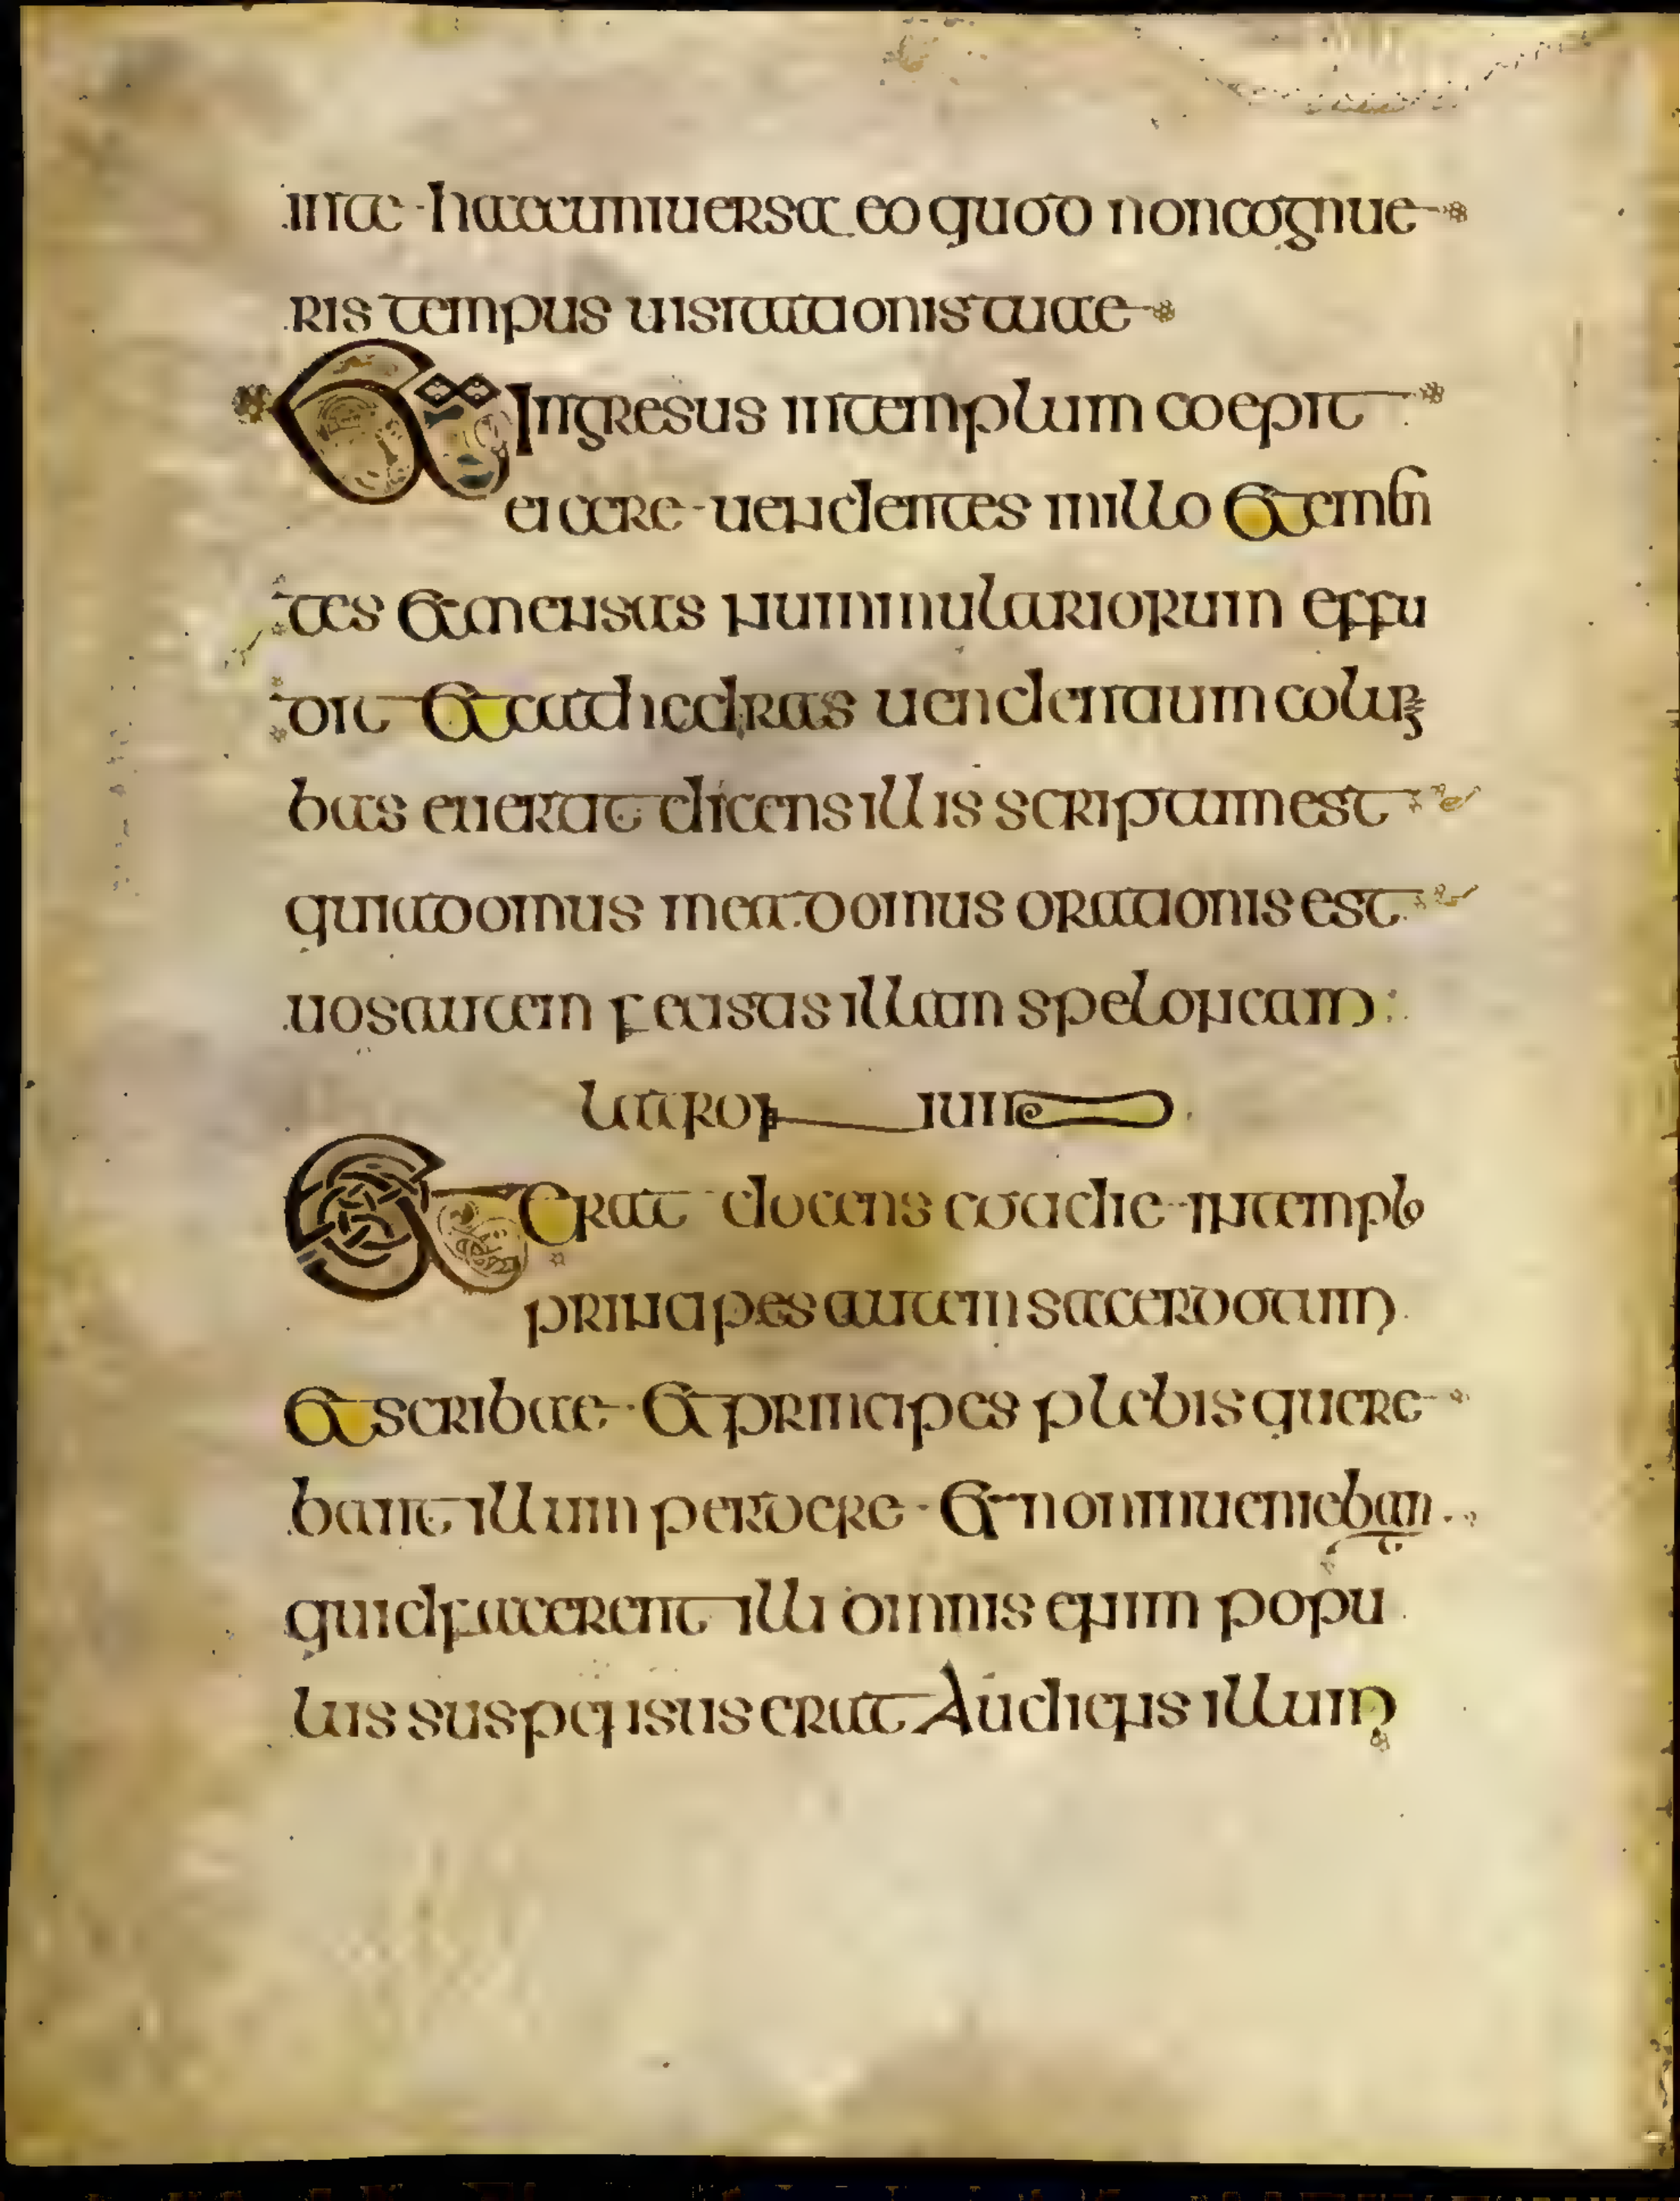 in te haec uniuersa eo quod non cognue
ris tempus uisitationis tuae
Et Ingresus in templum coepit
eiecere uendentes in illo et emen
tes et mensas nummulariorum effu
dit et cathedras uendentium colum
bas euerat dicens illis scriptum est
quia domus mea domus orationis est
uos autem fecistis illam speloncam
latronum
Et Erat docens cotidie in templo
principes autem sacerdotum
et scribae et principes plebis quere
bant illum perdere et non inueniebant
quid facerent illi omnis enim popu
lus suspensus erat Audiens illum